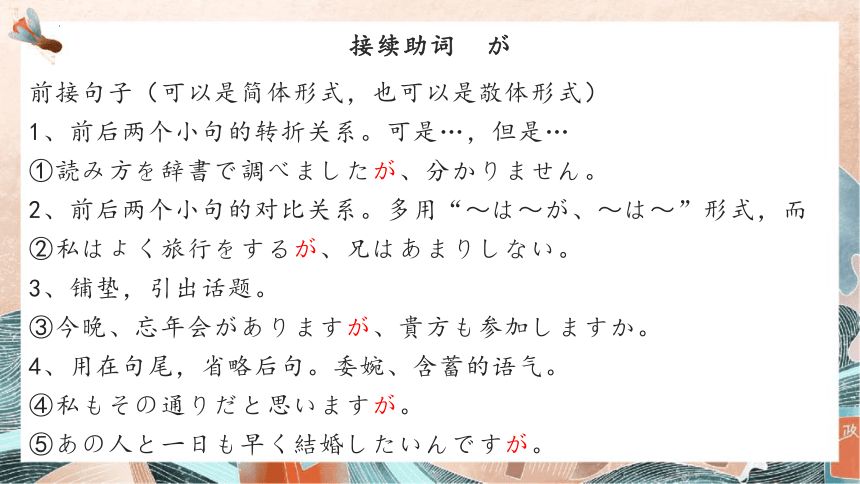 接续助词 が
前接句子（可以是简体形式，也可以是敬体形式）
1、前后两个小句的转折关系。可是…，但是…
①読み方を辞書で調べましたが、分かりません。
2、前后两个小句的对比关系。多用“～は～が、～は～”形式，而
②私はよく旅行をするが、兄はあまりしない。
3、铺垫，引出话题。
③今晩、忘年会がありますが、貴方も参加しますか。
4、用在句尾，省略后句。委婉、含蓄的语气。
④私もその通りだと思いますが。
⑤あの人と一日も早く結婚したいんですが。
政